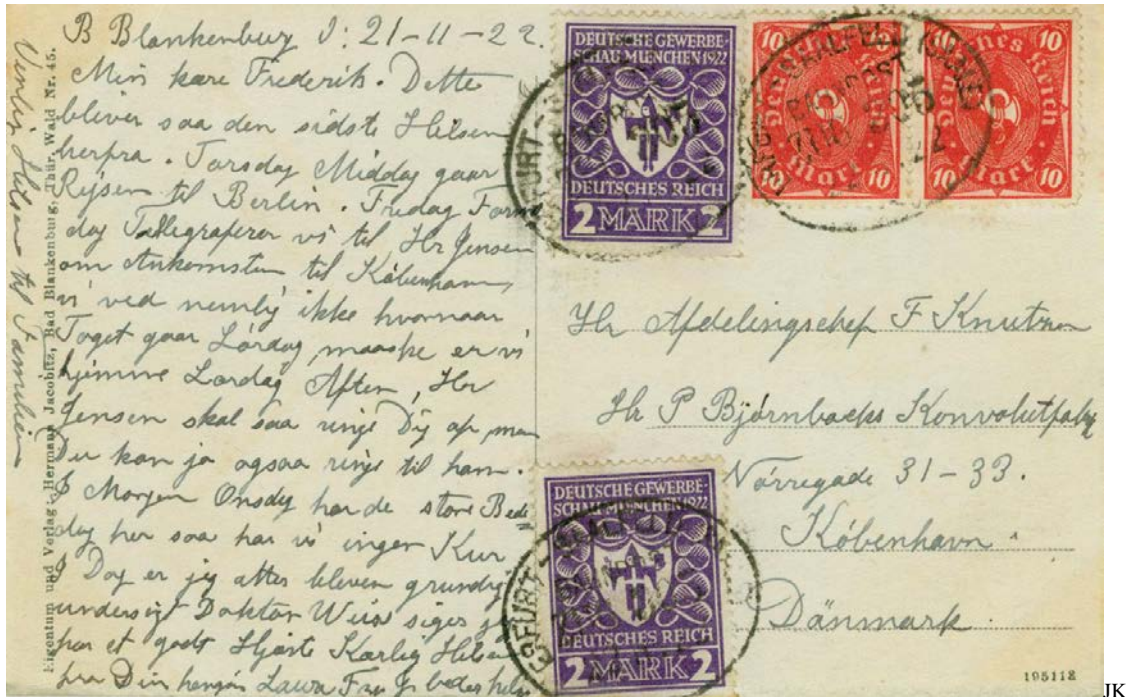 B Blankenburg d: 21-11-22.
Min kære Frederik. Dette
bliver saa den sidste Hilsen
herfra. Torsdag Middag gaar
Rejsen til Berlin. Fredag Form
dag Tellegraferer vi til Hr Jensen
om Ankomsten til København,
vi ved nemlig ikke hvornaar
Toget gaar Lørdag, maaske er vi
hjemme Lørdag Aften, Hr
Jensen skal saa ringe Dig op, men
Du kan jo ogsaa ringe til ham.
I Morgen Onsdag har de store Bede-
dag her saa har vi ingen Kur
I Dag er jeg atter bleven grundig
undersøgt Doktor siges jeg
har et godt Hjærte Kærlig Hilsen
fra Din hengivne Laura Fru J. beder hilse
Venlig Hilsen til Familien
Eigentum und Verlag: Hermann Jacobitz, Bad Blankenburg, Thür. Wald Nr. 45.
DEUTSCHE GEWERBE-
SCHAU MÜNCHEN 1922
DEUTSCHES REICH
2 MARK 2
10 10
Deutsches Reich
10 Mark 10
10 10
Deutsches Reich
10 Mark 10
SAALFELD
BAHNPOST
ERFURT
Hr Afdelingschef F Knutzen
Hr P Bjørnbacks Konvolutfabrik
Nørregade 31-33.
København.
Dänmark.
DEUTSCHE GEWERBE-
SCHAU MÜNCHEN 1922
DEUTSCHES REICH
2 MARK 2
ERFURT
195112
JK